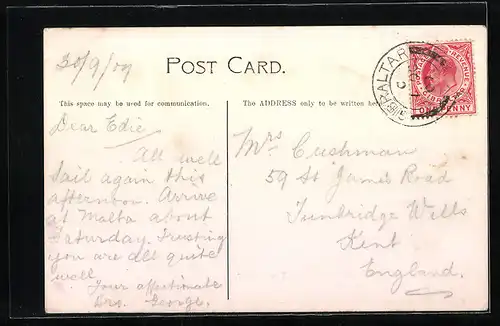 30/9/09
POST CARD.
GIBRALTAR
REVENUE
ONE PENNY
This space may be used for communication.
The ADDRESS only to be written here.
Dear Edie
All well
Sail again this
afternoon. Arrive
at Malta about
Saturday. Trusting
you are all quite
well
Your affectionate
Bro. George.
Mrs Cushman
59 St James Road
Tunbridge Wells
Kent
England.